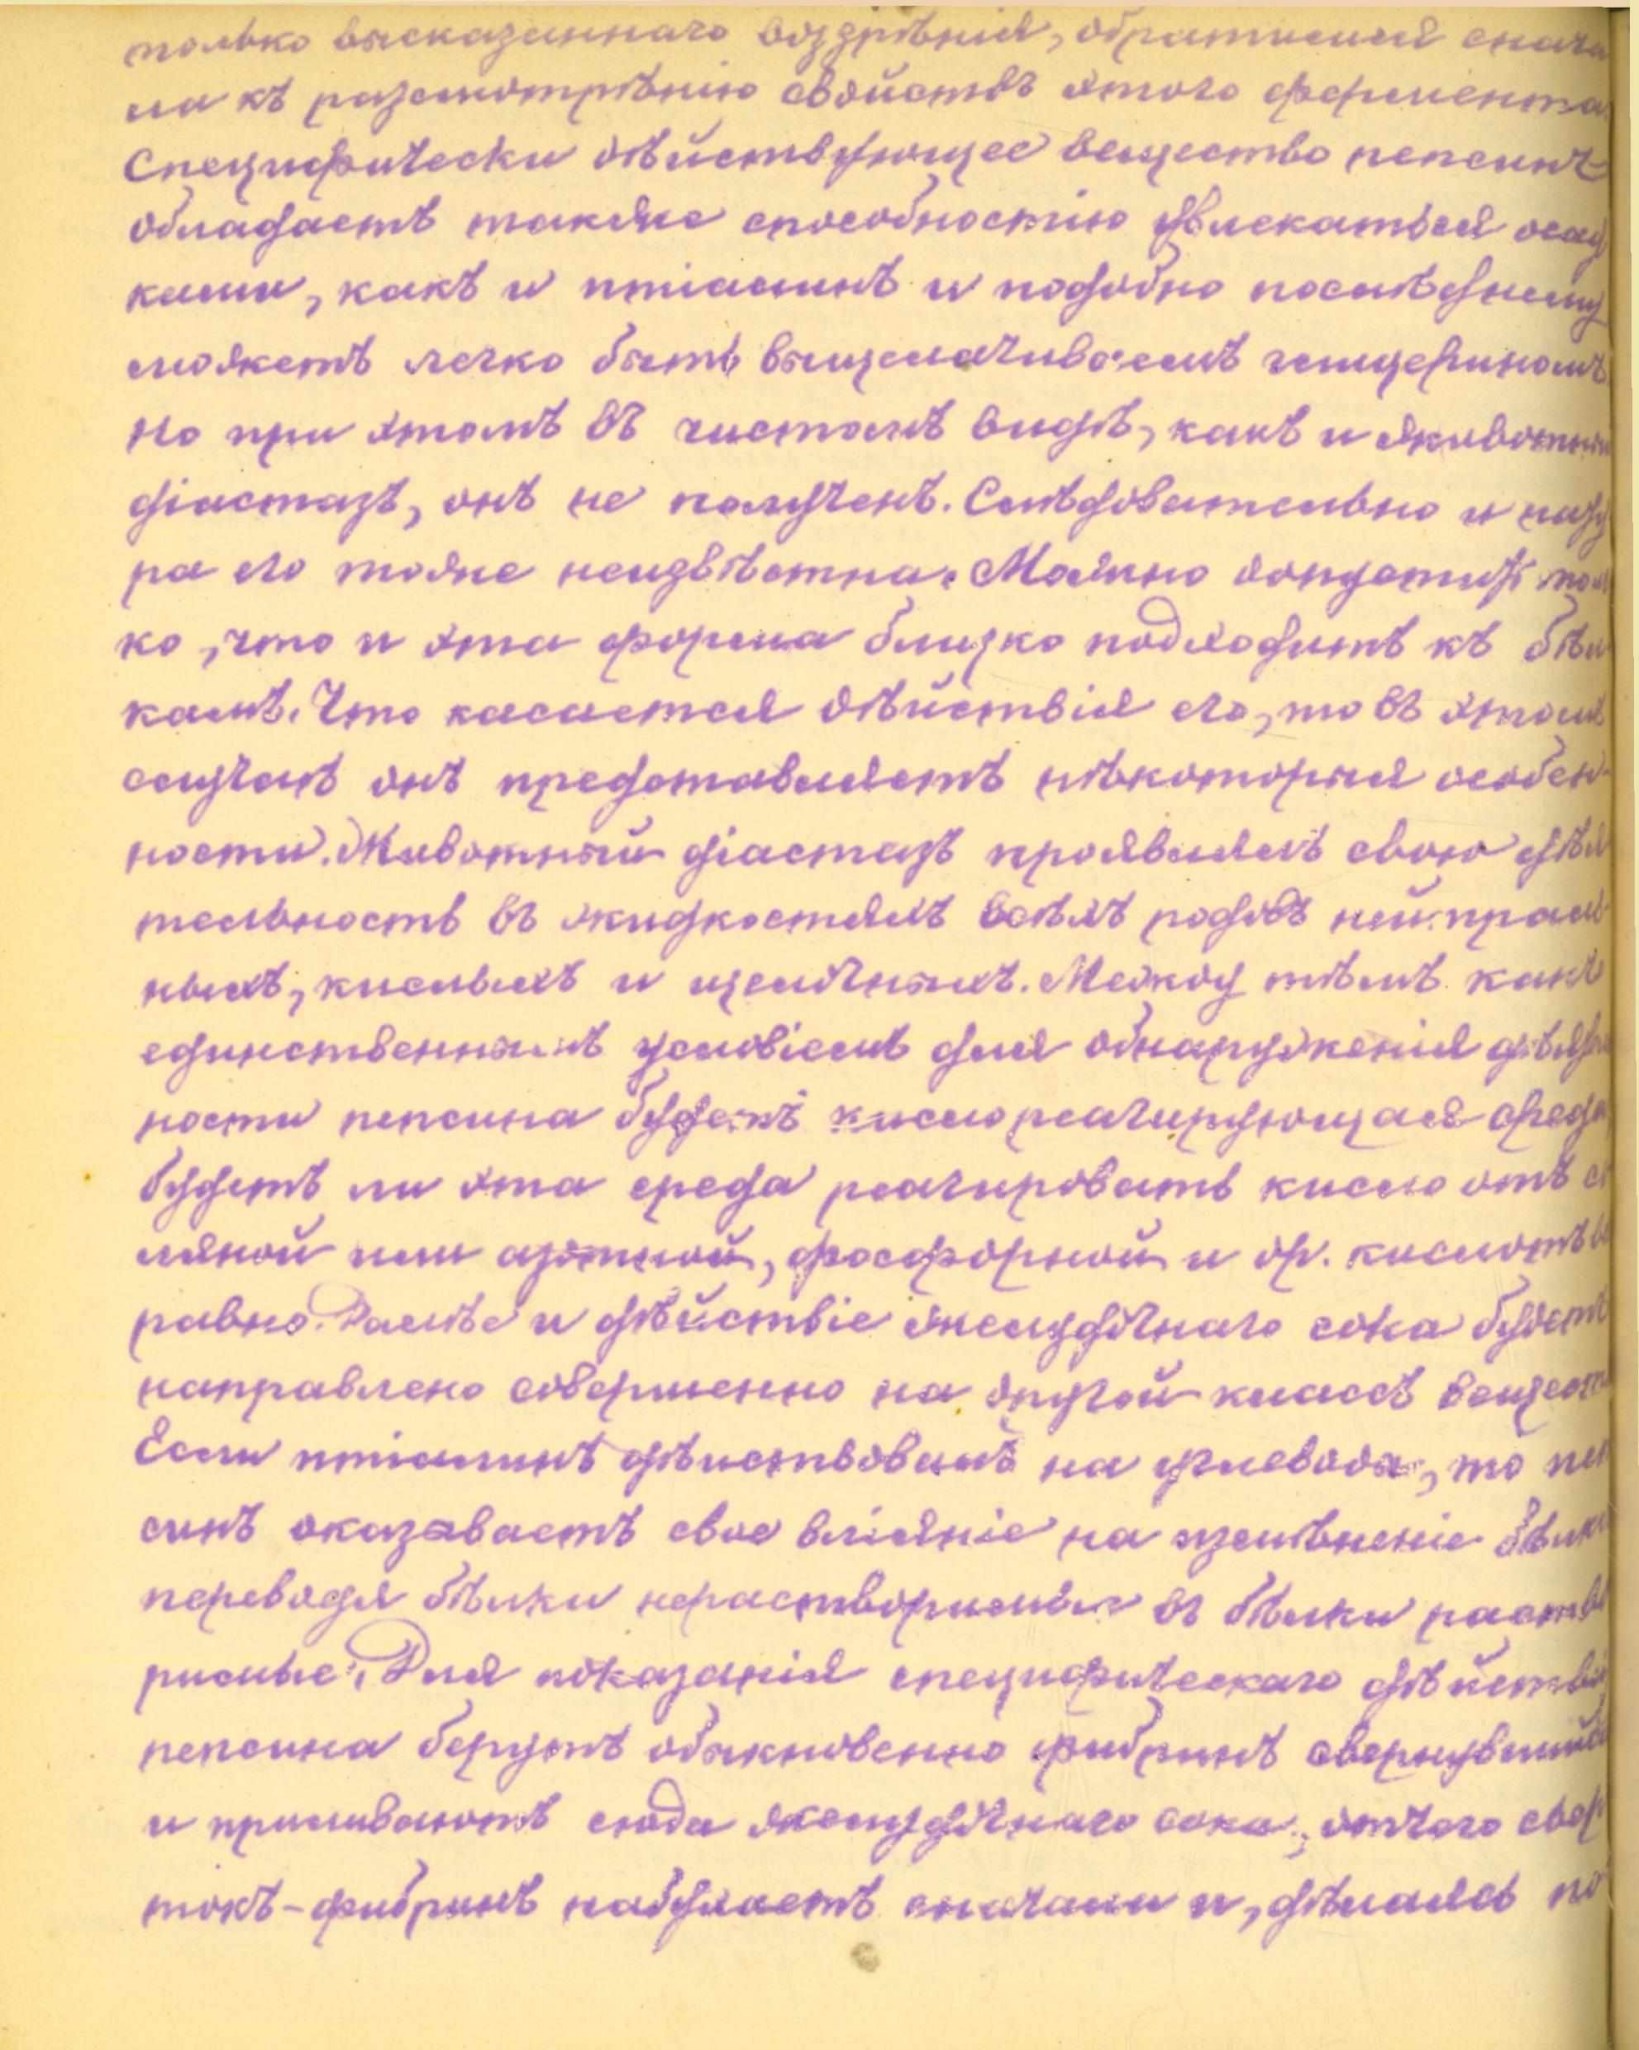 только высказаннаго воззрѣнія, обратимся снача
ла къ разсмотрѣнію свойствъ этого фермента.
Специфически дѣйствующее вещество пепсинъ
обладаетъ также способностію увлекаться осад
ками, какъ и птіалинъ и подобно послѣднему
можетъ легко быть выщелачиваемъ глицериномъ.
Но при этомъ въ чистомъ видѣ, какъ и животный
діастазъ, онъ не полученъ. Слѣдовательно и нату
ра его тоже неизвѣстна. Можно допустить толь
ко, что и эта форма близко подходитъ къ бѣл
камъ. Что касается дѣйствія его, то въ этомъ
случаѣ онъ представляетъ нѣкоторыя особен-
ности. Животный діастазъ проявлялъ свою дѣя
тельность въ жидкостяхъ всѣхъ родовъ нейтраль
ныхъ, кислыхъ и щелочныхъ. Между тѣмъ какъ
единственнымъ условіемъ для обнаруженія дѣятель
ности пепсина будетъ кисло реагирующая среда,
будетъ ли эта среда реагировать кисло отъ со
ляной или азотной, фосфорной и др. кислотъ все
равно. Далѣе и дѣйствіе желудочнаго сока будетъ
направлено совершенно на другой классъ веществъ
Если птіалинъ дѣйствовалъ на углеводы, то пеп
синъ оказываетъ свое вліяніе на измѣненіе бѣлк
переводя бѣлки нерастворимые въ бѣлки раство
римые. Для показанія специфическаго дѣйствія
пепсина берутъ обыкновенно фибринъ свернувшійся
и приливаютъ сюда желудочнаго сока, отчего свер
токъ-фибринъ набухаетъ сначала и, дѣлаясь по